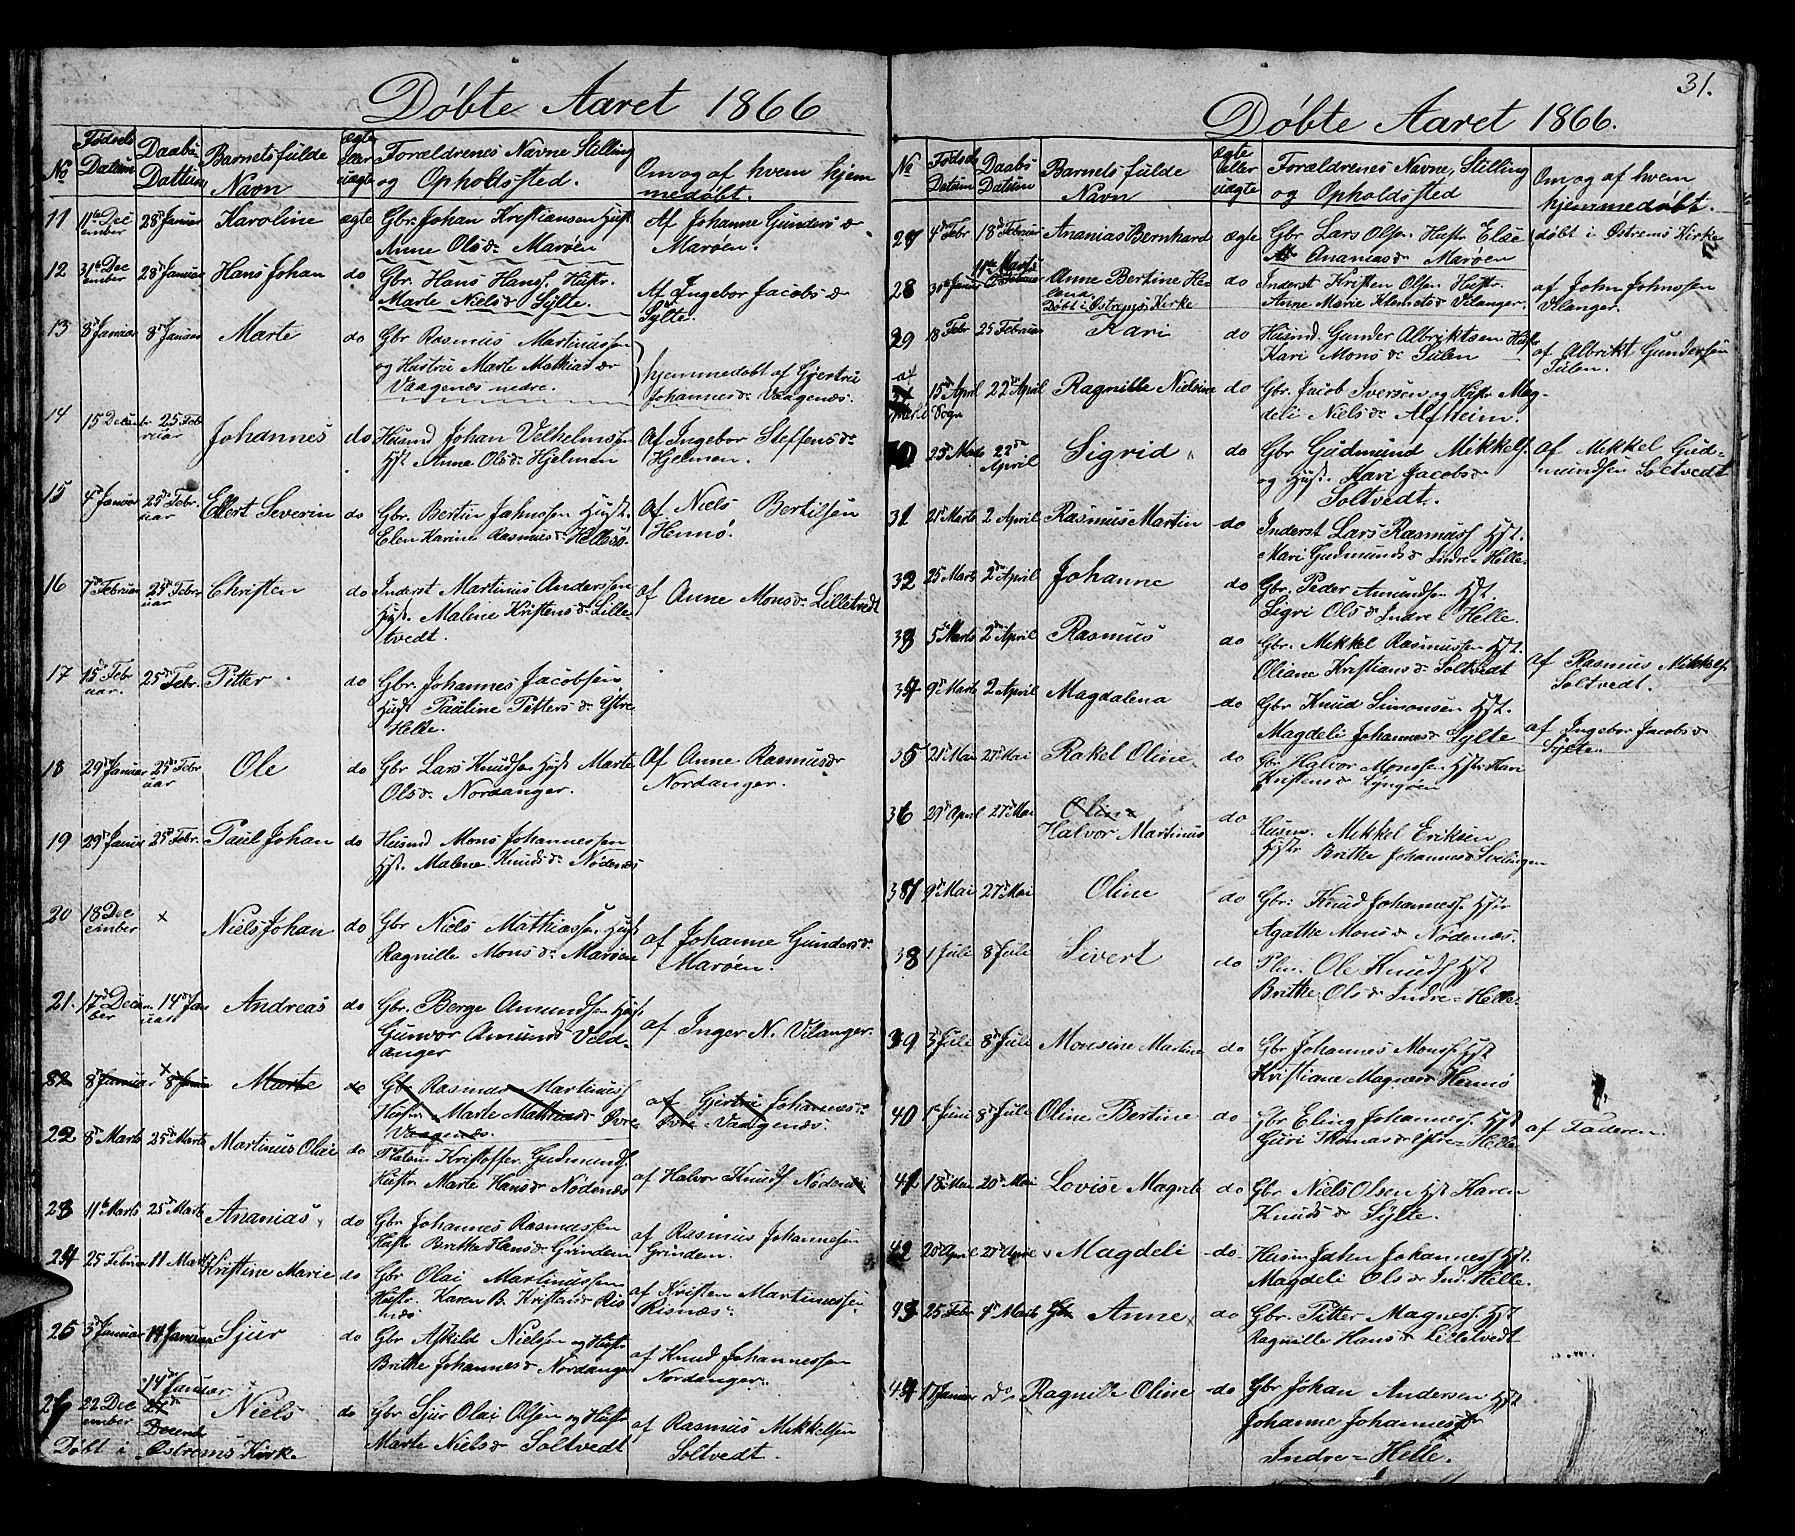 Døbte Aaret 1866
No Fødsels Datum Daabs Dattum Barnets fulde Navn ægte eller uægte Forældrenes Navne Stilling og Opholdssted. Om og af hvem hjemmedøbt.
11 11te December 28d Januar Karoline ægte Gbr. Johan Kristiansen Hust Anne Olsdr Marøen Af Johanne Gundersdr Marøen.
12 31te December 28d Januar Hans Johan do Gbr. Hans Hans. Hustr. Marte Nielsdr Sylte. Af Ingebor Jacobsdr Sylte.
13 8d Januar 8d Januar Marte do Gbr Rasmus Martinussen og Hustrue Marte Mathiasdr Vaagenæs nedre. hjemmedøbt af Gjertrü Johannesdr Vaagenæs.
14 15 December 25 Februar Johannes do Husmd Johan Velhelmssen Hst. Anne Olsdr Hjelmen Af Ingebor Steffensdr Hjelmen.
15 4d Januar 25d Februar Ellert Severin do Gbr. Bertin Jahnssen Hust. Elen Karine Rasmusdr Hellesö. Af Niels Bertilsen Hennö.
16 7d Februar 25d Februar Christen do Inderst Martinus Anderssen Hust Malene Kristensdr Lilletvedt. af Anne Monsdr Lilletvedt
17 15d Februar. 25d Febr. Pitter do Gbr. Johannes Jacobsen Hust Pauline Pittersdr Ytre Helle.
18 29d Januar 25d Februar Ole do Gbr Lars Knudsen Hust Marte Olsdr Nordanger. Af Anne Rasmusdr Nordanger.
19 29d Januar 25d Febr. Paul Johan do Husmd Mons Johannessen Hst. Malene Knudsdr Nødenæs
20 18 December x Niels Johan do Gbr Niels Mathiassen Hust Ragnille Monsdr Marøen af Johanne Gundersdr. Marøen.
21. 17d December 14d Januar Andreas do Gbr. Berge Amundsen Hust Gunvor Amundsdr Veldanger af Inger N. Vilanger.
22 8d Januar x 8 Januar Marte do Gbr Rasmus Martinuss Hustr. Marte Mathiasdr Øvre Vaagenæs. af Gjertrü Johannesdr. Øvre Vaagenæs.
22 8d Marts 25d Marts Martinus Olai do Kristoffer Gudmunds. Hustr Marte Hansdr Nødenæs af Halvor Knuds Nødenæs
23 11te Marts 25d Marts Ananias do Gbr Johannes Rasmussen Hustr Brithe Hansdr Grindem af Rasmus Johannesen Grindem.
24 25 Februar 11 Marts Kristine Marie do Gbr Olai Martinussen Hustr. Karen B. Kristensdr Risnæs af Kristen Martinussen Risnæs
25 3d Januar 14 Januar Sjur do Gbr Askild Nielsen og Hustr Brithe Johannesdr Nordanger af Knud Johannessen Nordanger.
26 22 December 14d Januar Decemb Niels do Gbr Sjur Olai Olsen og Hustr Marte Nielsdr Soltvedt af Rasmus Mikkelsen Soltvedt.
Døbt i Østrems Kirke
31.
Døbte Aaret 1866.
No Fødsels Datum Daabs Datum Barnets fulde Navn ægte eller uægte Forældrenes Navne, Stilling og Opholdssted Om og af hvem hjemmedøbt.
27 4d Febr 18d Februar Ananias Bernhard ægte Gbr Lars Olsen Hustr Else Ananiasdr Marøen døbt i Østrems Kirke
28 30te Januar 11te Marts Anne Bertine Helena. Døbt i Østrems Kirke do Inderst Kristen Olsen Hustr. Anne Marie Klemetsdr Vilanger. af John Johnssen Vilanger.
29 18 Febr 25 Februar Kari do Husmd. Gunder Albriktsen Hustr Kari Monsdr Sülen af Albrikt Gundersen Sülen.
af Sogn 15d April 22d April Ragnille Nielsine do Gbr. Jacob Iversen og Hustr Magdeli Nielsdr Alfheim.
30 25d Marts 22d April Sigrid do Gbr Gudmund Mikkels. og Hust. Kari Jacobsdr Soltvedt. Af Mikkel Gudmundsen Soltvedt
31 21d Marts 2 April Rasmus Martin do Inderst Lars Rasmuss Hst. Mari Gudmundsdr Indre Helle.
32 25 Marts 2d April Johanne do Gbr. Peder Amundsen Hst. Sigri Olsdr Indre Helle.
33 5te Marts 2d April Rasmus do Gbr. Mikkel Rasmussen Hst. Oliane Kristiansdr Soltvedt af Rasmus Mikkels. Soltvedt.
34 9d Marts 2 April Magdalena do Gbr Knud Simonsen Hst. Magdeli Johannesdr Sylte af Ingebor Jacobsdr Sylte.
35 21d Mai 27d Mai Rakel Oline do Gbr Halvor Monsen Hstr Kari Kristensdr Lyngøen
36 29d April 27d Mai Oline Halvor Martinus do Husm. Mikkel Eriksen Hustr Brithe Johannesdr
37 9d Mai 27d Mai Oline do Gbr: Knud Johanness. Hstr Agathe Monsdr Nødenæs.
38 1 Juli 8d Juli Sivert do Ole Knuds Hst Brithe Olsdr Indre Helle.
39 3d Juli 8d Juli Monsine Martine do Gbr Johannes Mons. Hst Kristiane Magnesdr Hennö
40 1d Juni 8d Juli Oline Bertine do Gbr Eling Johanness. Hst Guri Thomasdr Ytre Helle af Faderen.
41 18d Mai 20d Mai Lovise Magrete do Gbr Niels Olsen Hst Karen Knudsdr Sylte.
42 20d April 27d April Magdeli do Husm Jahn Johanness Hst. Magdeli Olsdr Ind. Helle.
43 25 Febr 4d Marts Gbr Anne do Gbr. Pitter Magness Hst Ragnille Hansdr Lilletvedt
44 17 Januar do Ragnille Oline do Gbr Johan Andersen Hst Johanne Johannesdr Indre Helle.